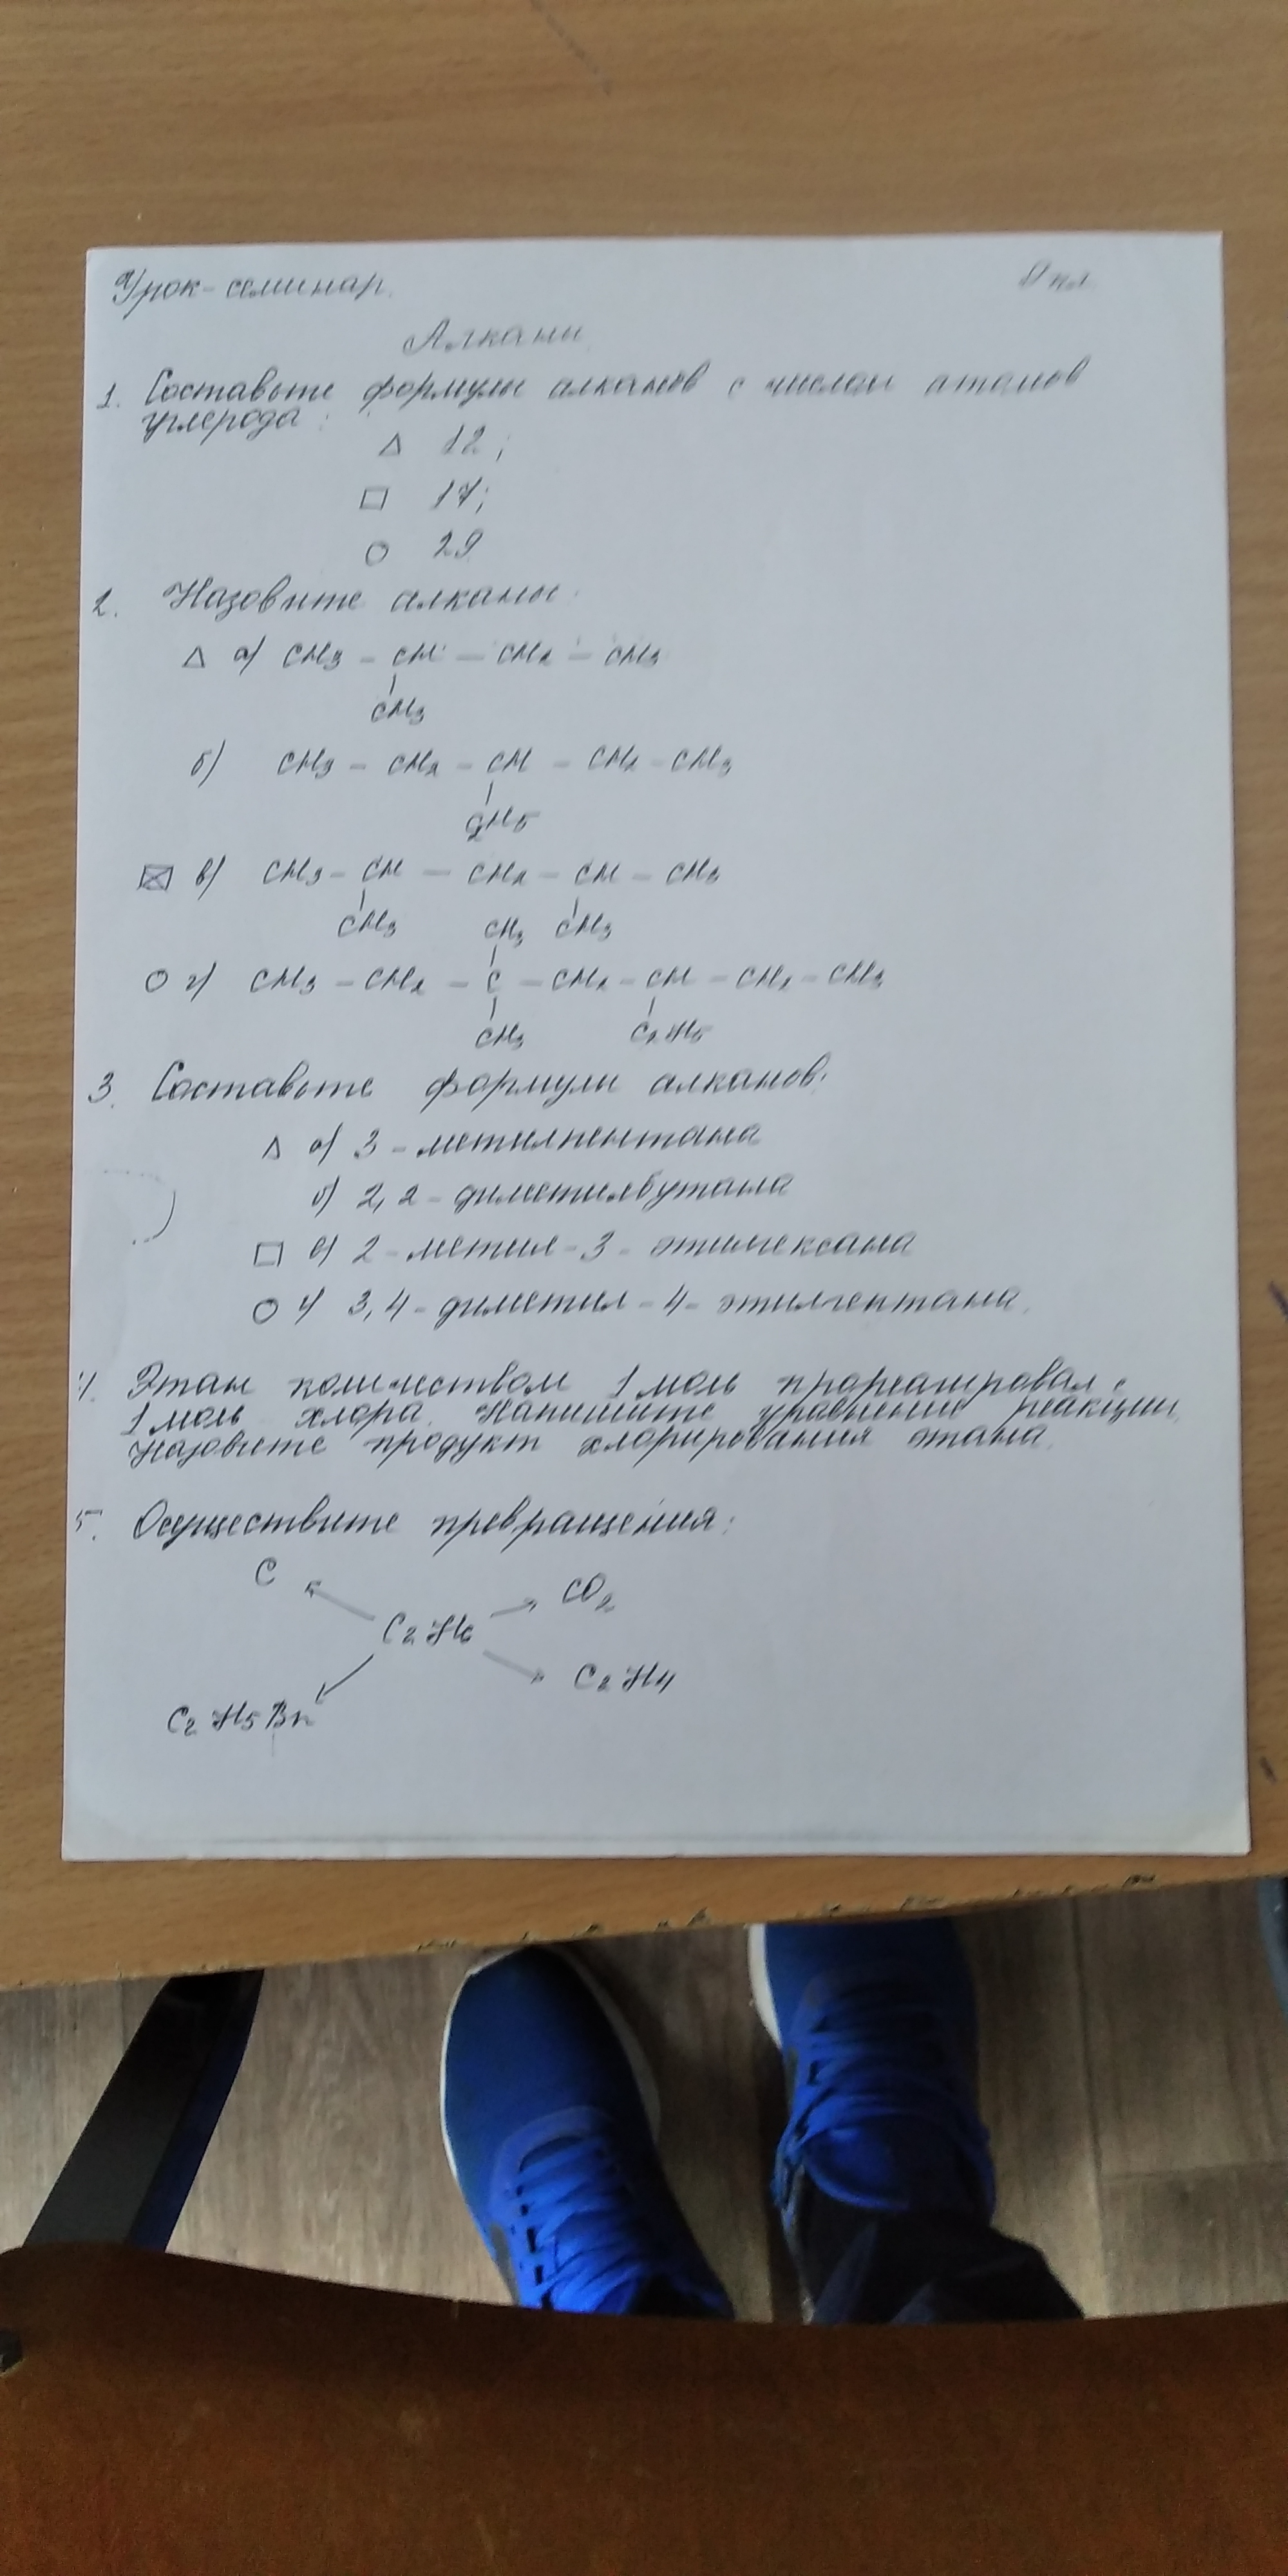 Урок-семинар.
Алканы.
1. Составьте формулы алканов с числом атомов
углерода:
△ 12;
□ 17;
○ 29
2. Назовите алканы:
△ а) CH3 - CH - CH2 - CH3
CH3
б) CH3 - CH2 - CH - CH2 - CH3
C2H5
в) CH3 - CH - CH2 - CH - CH3
CH3 CH3
CH3
○ г) CH3 - CH2 - C - CH2 - CH - CH2 - CH3
CH3 C2H5
3. Составьте формулы алканов:
△ а) 3-метилпентана
б) 2,2-диметилбутана
□ в) 2-метил-3-этилгексана
○ г) 3,4-диметил-4-этилгептана.
4. Этан количеством 1 моль прореагировал с
1 моль хлора. Напишите уравнение реакции.
Назовите продукт хлорирования этана.
5. Осуществите превращения:
C CO2
C2H6
C2H4
C2H5Br